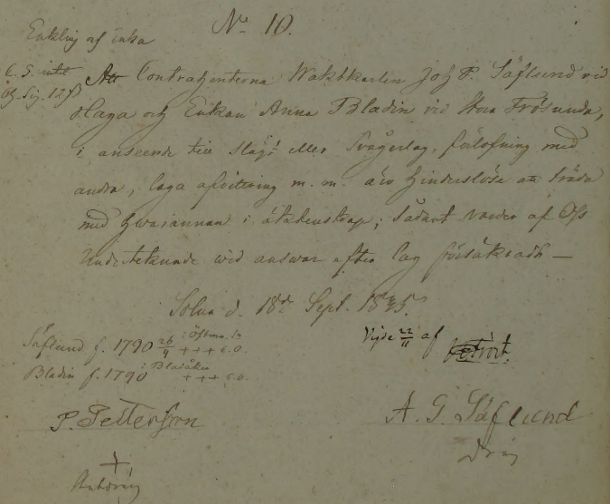 No 10.
Enkling af enka
Att Contrahenterna Waktkarlen Joh P. Säflund vid
Haga och Enkan Anna Bladin vid Stora Frösunda,
i anseende till Slägt eller Svågerlag, förlofning med
andra, laga afvittring m. m. äro hinderslöse att träda
med hwarannan i äktenskap; Sådant warder af Oss
Underteknade wid answar efter lag försäkradt —
Solna d. 18de Sept. 1835.
Säflund f. 1790 26/4 +++ 6.0.
Bladin f. 1790 +++ 6.0.
Vigde 22/11 af
P. Petterson
A. G. Säflund